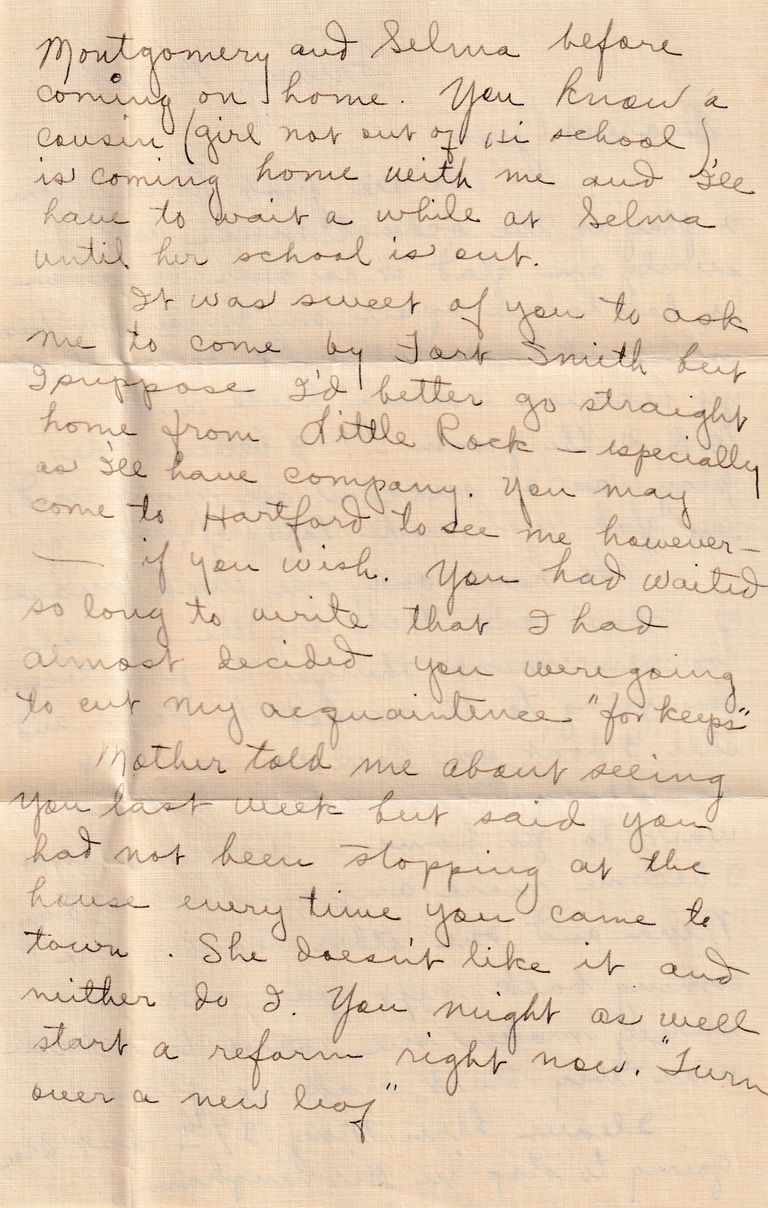 Montgomery and Selma before
coming on home. You know a
cousin (girl not out of Hi school)
is coming home with me and I'll
have to wait a while at Selma
until her school is out.
It was sweet of you to ask
me to come by Fort Smith but
I suppose I'd better go straight
home from Little Rock – especially
as I'll have company. You may
come to Hartford to see me however –
— if you wish. You had waited
so long to write that I had
almost decided you were going
to cut my acquaintence "for keeps"
Mother told me about seeing
you last week but said you
had not been stopping at the
house every time you came to
town. She doesn't like it and
neither do I. You might as well
start a reform right now. "Turn
over a new leaf"